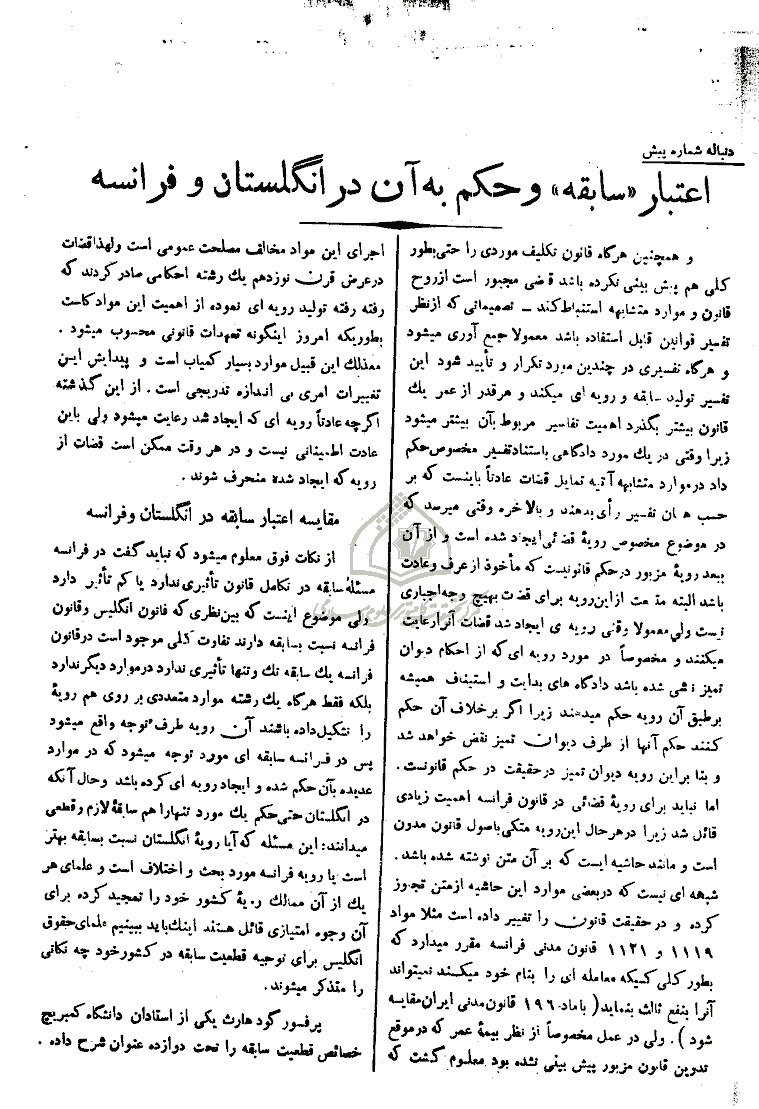 دنباله شماره پیش
اعتبار «سابقه» و حکم به آن در انگلستان و فرانسه
و همچنین هرگاه قانون تکلیف موردی را حتی بطور
کلی هم پیش بینی نکرده باشد قاضی مجبور است از روح
قانون و موارد متشابهه استنباط کند ــ تصمیماتی که از نظر
تفسیر قوانین قابل استفاده باشد معمولا جمع آوری میشود
و هرگاه تفسیری در چندین مورد تکرار و تأیید شود این
تفسیر تولید سابقه و رویه ای میکند و هرقدر از عمر یك
قانون بیشتر بگذرد اهمیت تفاسیر مربوط بآن بیشتر میشود
زیرا وقتی در یك مورد دادگاهی باستناد تفسیر مخصوص حکم
داد در موارد متشابهه آتیه تمایل قضات عادتاً باینست که بر
حسب همان تفسیر رأی بدهند و بالاخره وقتی میرسد که
در موضوع مخصوص رویۀ قضائی ایجاد شده است و از آن
ببعد رویۀ مزبور در حکم قانونیست که مأخوذ از عرف و عادت
باشد البته متابعت از این رویه برای قضات بهیچ وجه اجباری
نیست ولی معمولا وقتی رویه ی ایجاد شد قضات آنرا رعایت
میکنند و مخصوصاً در مورد رویه ای که از احکام دیوان
تمیز ناشی شده باشد دادگاه های بدایت و استیناف همیشه
برطبق آن رویه حکم میدهند زیرا اگر برخلاف آن حکم
کنند حکم آنها از طرف دیوان تمیز نقض خواهد شد
و بنا براین رویه دیوان تمیز درحقیقت در حکم قانونست .
اما نباید برای رویۀ قضائی در قانون فرانسه اهمیت زیادی
قائل شد زیرا درهرحال این رویه متکی باصول قانون مدون
است و مانند حاشیه ایست که بر آن متن نوشته شده باشد .
شبهه ای نیست که دربعضی موارد این حاشیه ازمتن تجاوز
کرده و درحقیقت قانون را تغییر داده است مثلا مواد
۱۱۱۹ و ۱۱۲۱ قانون مدنی فرانسه مقرر میدارد که
بطور کلی کسیکه معامله ای را بنام خود میکسند نمیتواند
آنرا بنفع ثالث بنماید ( با ماده ۱۹۶ قانون مدنی ایران مقایسه
شود ) . ولی در عمل مخصوصاً از نظر بیمۀ عمر که درموقع
تدوین قانون مزبور پیش بینی نشده بود معلوم گشت که
اجرای این مواد مخالف مصلحت عمومی است ولهذا قضات
درعرض قرن نوزدهم یك رشته احکامی صادر کردند که
رفته رفته تولید رویه ای نموده از اهمیت این مواد کاست
بطوریکه امروز اینگونه تعهدات قانونی محسوب میشود .
معذلك این قبیل موارد بسیار کمیاب است و پیدایش این
تغییرات امری بی اندازه تدریجی است . از این گذشته
اگرچه عادتاً رویه ای که ایجاد شد رعایت میشود ولی باین
عادت اطمینانی نیست و در هر وقت ممکن است قضات از
رویه که ایجاد شده منحرف شوند .
مقایسه اعتبار سابقه در انگلستان وفرانسه
از نکات فوق معلوم میشود که نباید گفت در فرانسه
مسئلۀ سابقه در تکامل قانون تأثیری ندارد یا کم تأثیر دارد
ولی موضوع اینست که بین نظری که قانون انگلیس وقانون
فرانسه نسبت بسابقه دارند تفاوت کلی موجود است درقانون
فرانسه یك سابقه تك وتنها تأثیری ندارد درموارد دیگر ندارد
بلکه فقط هرگاه یك رشته موارد متعددی بر روی هم رویۀ
را تشکیل داده باشند آن رویه طرف توجه واقع میشود
پس در فرانسه سابقه ای مورد توجه میشود که در موارد
عدیده بآن حکم شده و ایجاد رویه ای کرده باشد وحال آنکه
در انگلستان حتی حکم یك مورد تنها را هم سابقۀ لازم و قطعی
میدانند: این مسئله که آیا رویۀ انگلستان نسبت بسابقه بهتر
است یا رویه فرانسه مورد بحث و اختلاف است و علمای هر
یك از آن ممالك رویۀ کشور خود را تمجید کرده برای
آن وجوه امتیازی قائل هستند اینك باید ببینیم علمای حقوق
انگلیس برای توجیه قطعیت سابقه در کشور خود چه نکاتی
را متذکر میشوند .
پرفسور گود هارت یکی از استادان دانشگاه کمبریج
خصائص قطعیت سابقه را تحت دوازده عنوان شرح داده .